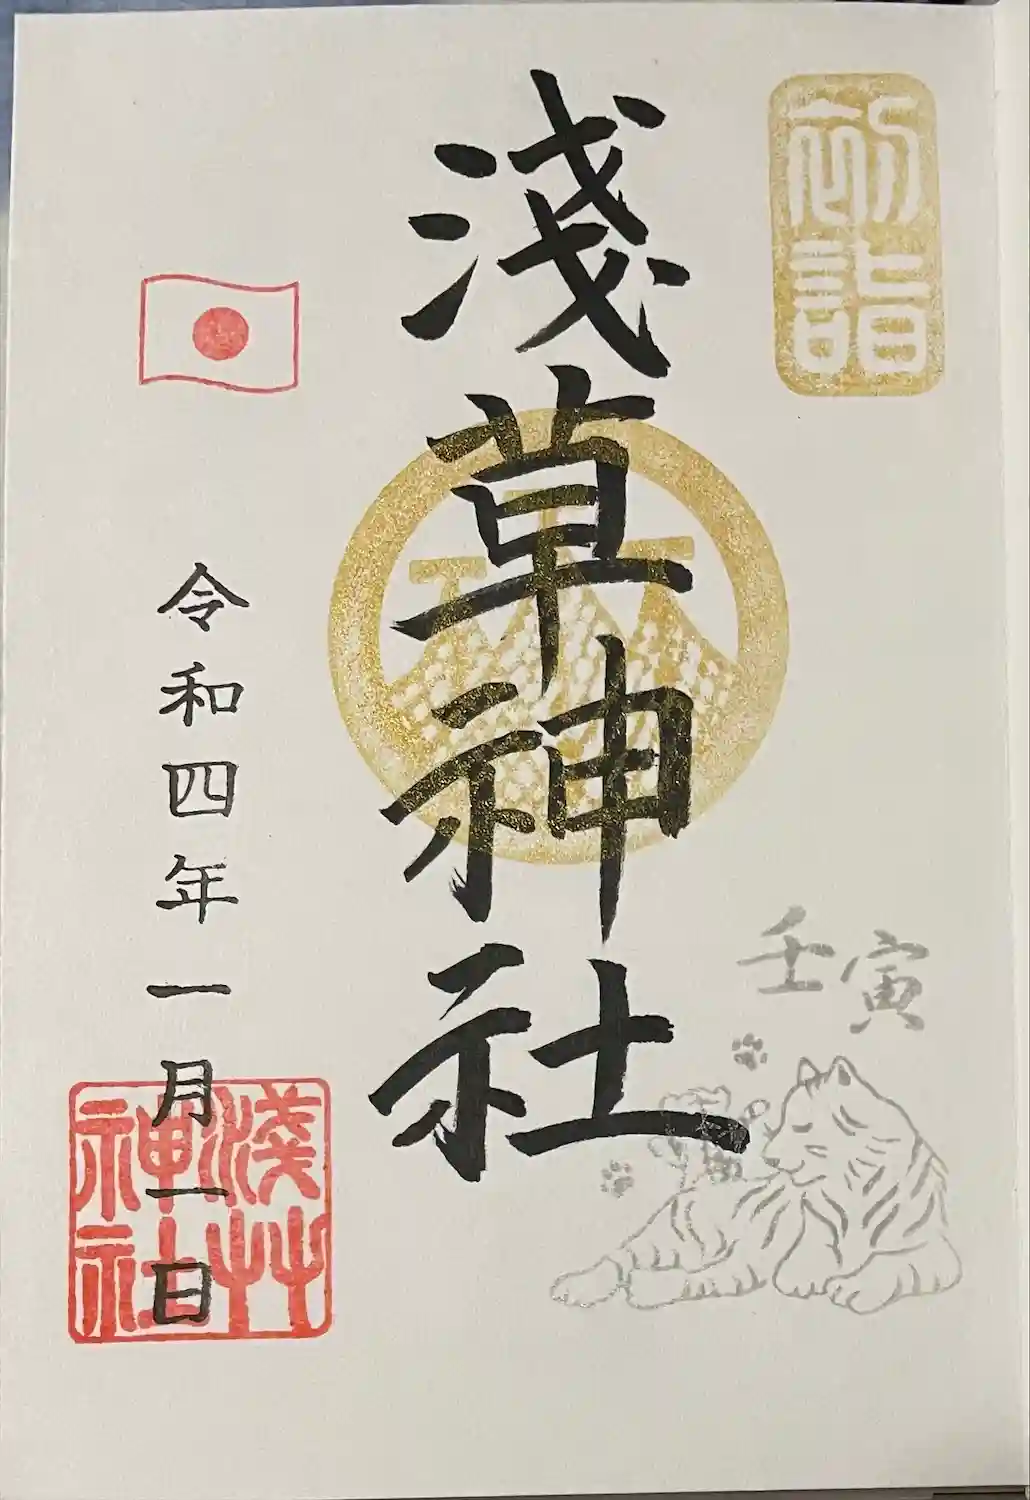 初詣
壬寅
淺草神社
令和四年一月一日
淺艸神社